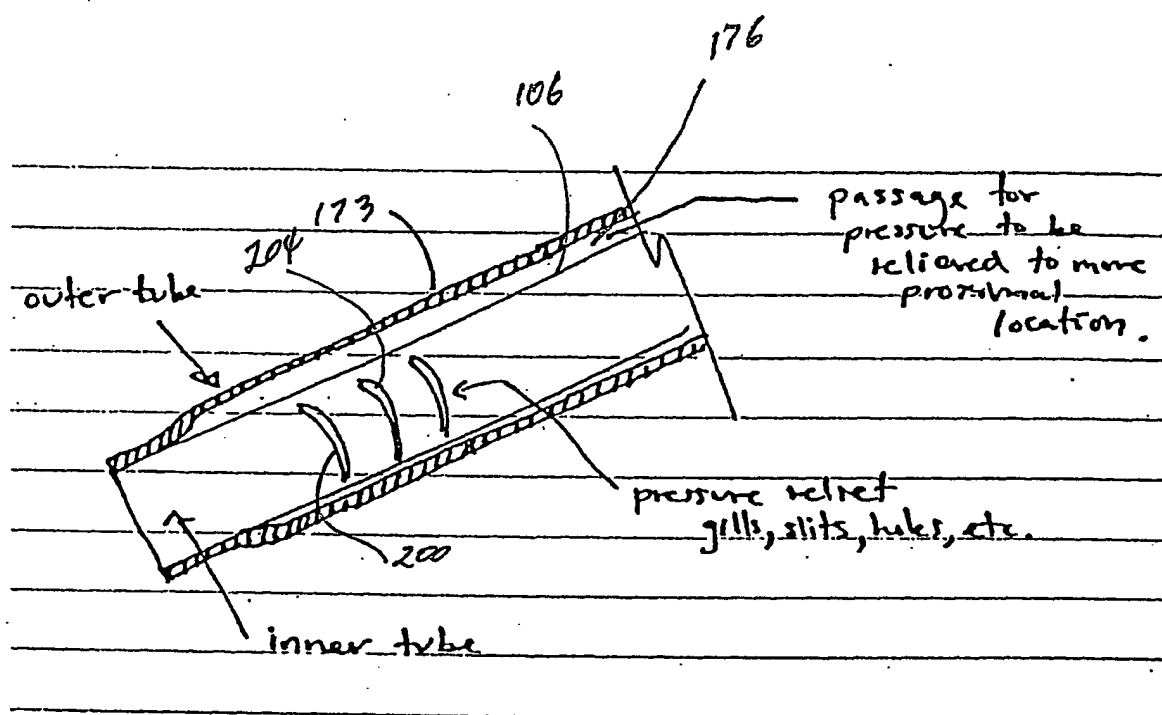 176
106
173
204
passage for
pressure to be
relieved to more
proximal
location.
outer tube
pressure relief
gills, slits, holes, etc.
200
inner tube